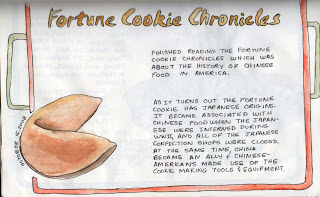 Fortune Cookie Chronicles
FINISHED READING THE FORTUNE
COOKIE CHRONICLES WHICH WAS
ABOUT THE HISTORY OF CHINESE
FOOD IN AMERICA.
AS IT TURNS OUT THE FORTUNE
COOKIE HAS JAPANESE ORIGINS.
IT BECAME ASSOCIATED WITH
CHINESE FOOD WHEN THE JAPAN-
ESE WERE INTERNED DURING
WWII, AND ALL OF THE JAPANESE
CONFECTION SHOPS WERE CLOSED.
AT THE SAME TIME, CHINA
BECAME AN ALLY & CHINESE-
AMERICANS MADE USE OF THE
COOKIE MAKING TOOLS & EQUIPMENT.